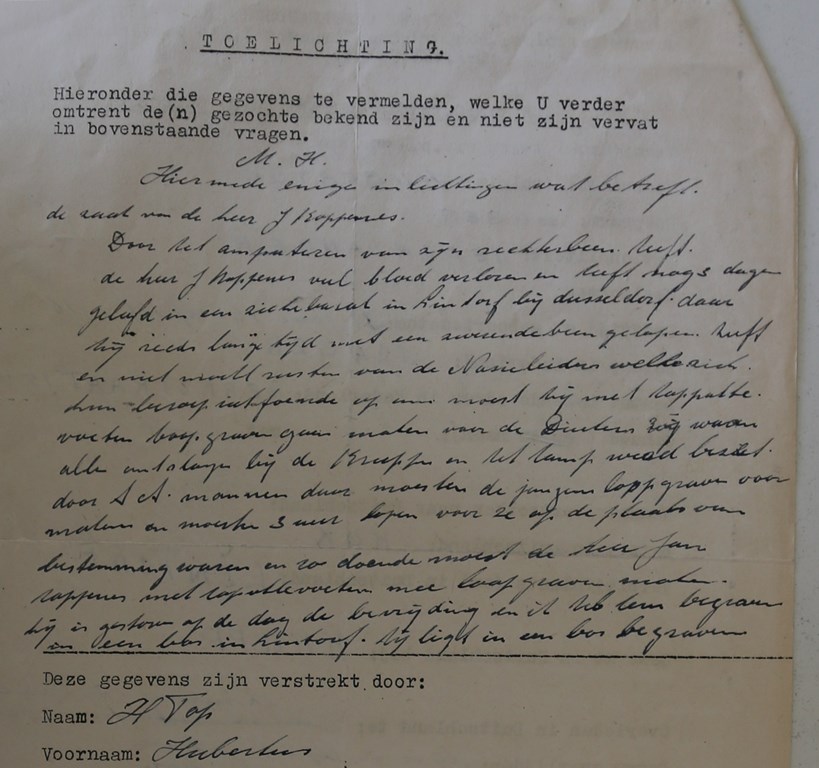 TOELICHTING.
Hieronder die gegevens te vermelden, welke U verder
omtrent de(n) gezochte bekend zijn en niet zijn vervat
in bovenstaande vragen.
M. H.
Hiermede enige inlichtingen wat betreft.
de zaak van de heer J Koppenes.
Door het amputeren van zijn rechterbeen heeft.
de heer J Koppenes veel bloed verloren en heeft nog 3 dagen
geleefd in een ziekebarak in Lintorf bij dusseldorf. daar
hij reeds lange tijd met een zwerendebeen gelopen heeft
en niet mocht rusten van de Nasieleiders welke zich
hun beroep op moest hij met kapotte.
voeten loopgraven gaan maken voor de zij waren
alle ontslagen bij de Kruppe en het kamp werd bezet.
door S A. mannen daar moesten de jongens loopgraven voor
maken en moesten 3 uur lopen voor ze op de plaats van
bestemming waren en zo doende moest de heer Jan
koppenes met kapottevoeten mee loopgraven maken.
hij is gestorven op de dag de bevrijding en ik heb hem begraven
in een bos in Lintorf. hij ligt in een bos begraven
Deze gegevens zijn verstrekt door:
Naam: H Top
Voornaam: Hubertus